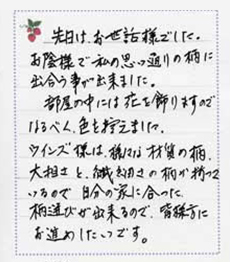 先日はお世話様でした。
お陰様で私の思い通りの柄に
出合う事が出来ました。
部屋の中には花を飾りますので
なるべく色を控えました。
ウインズ様は、様々な材質の柄、
大胆さと、繊細さの柄が揃って
いるので自分の家に合った
柄選びが出来るので、皆様方に
お進めしたいです。